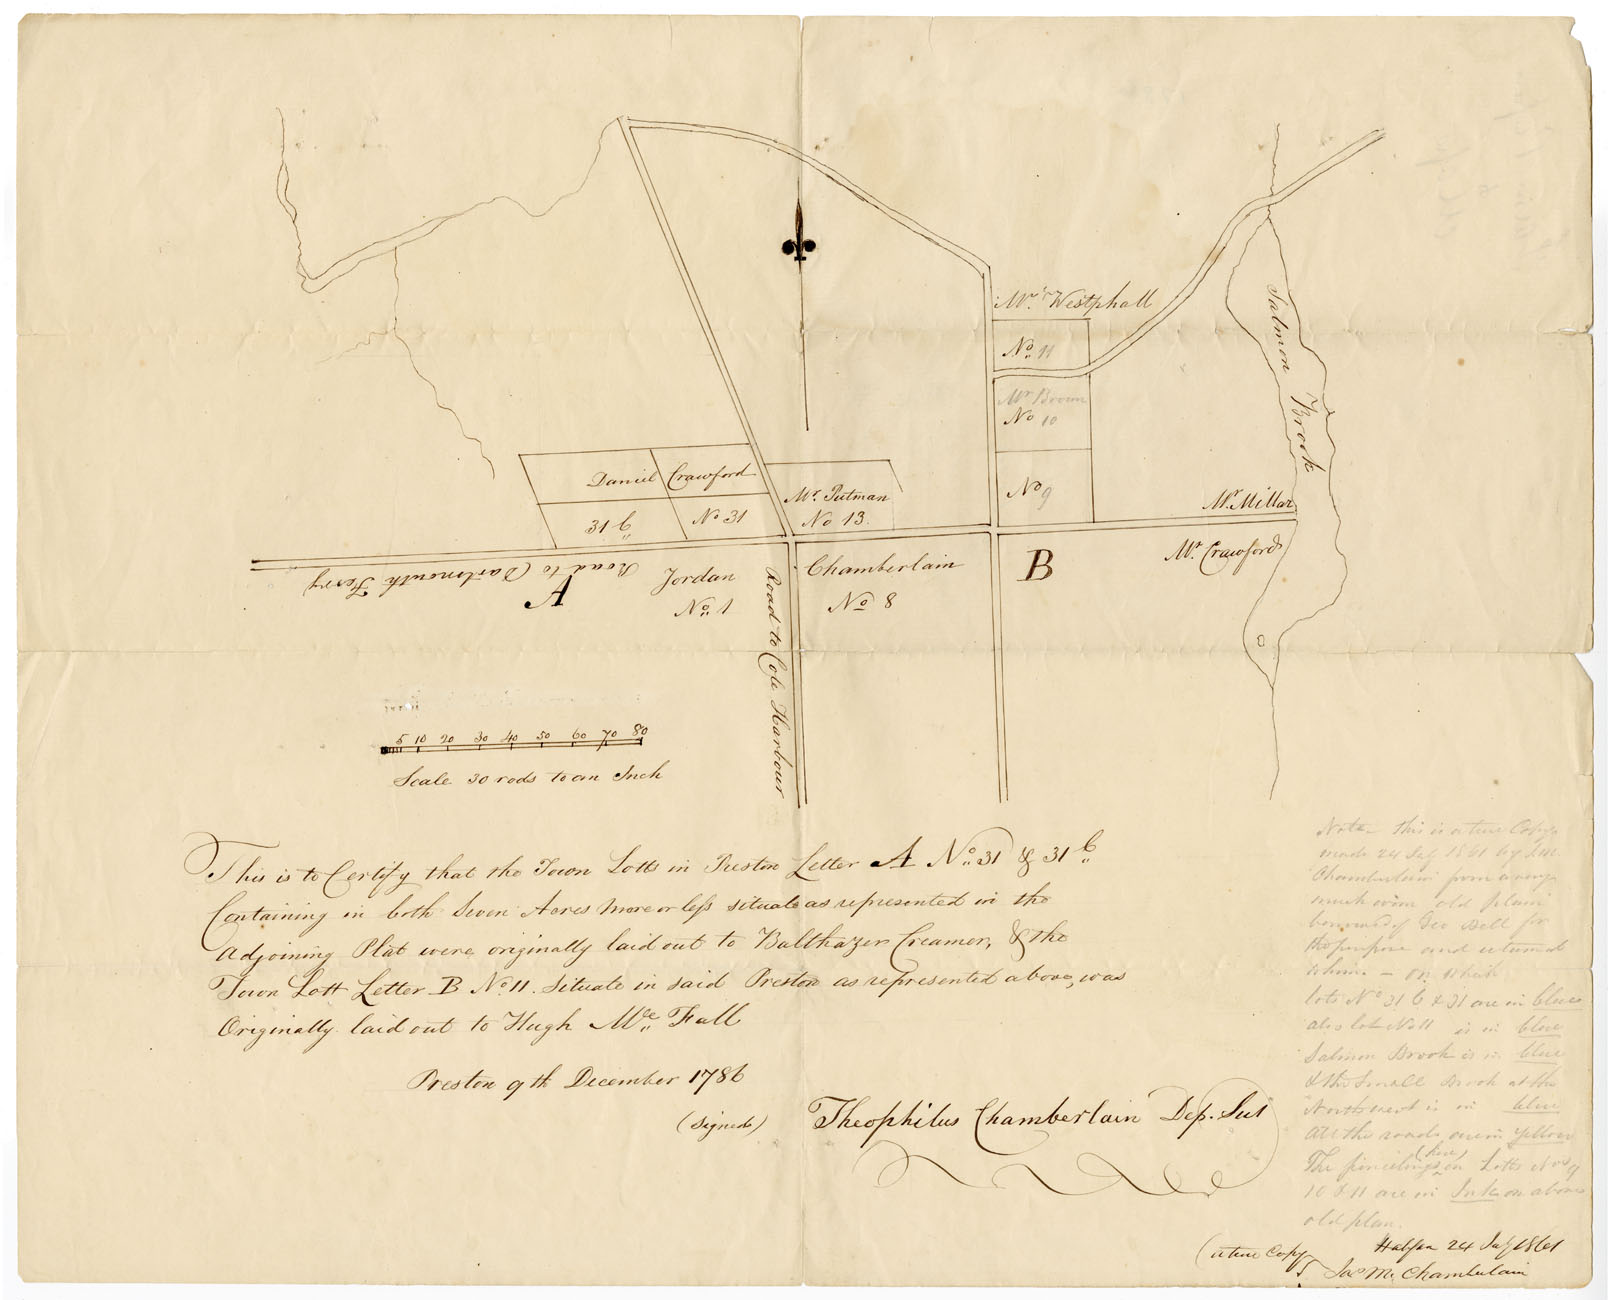 Mr. Westphall
No. 11
Mr Brown
No 10
No 9
Salmon Brook
Daniel Crawford
31 b
No 31
Mr. Putman
No 13.
Mr. Millar
Mr. Crawfords
Road to Dartmouth Ferry
A
Jordan
No. 1
Road to Cole Harbour
Chamberlain
No 8
B
5 10 20 30 40 50 60 70 80
Scale 30 rods to an Inch
This is to Certify that the Town Lotts in Preston Letter A No. 31 & 31 b
Containing in both Seven Acres more or less situate as represented in the
Adjoining Plat were originally laid out to Balthazer Creamer, & the
Town Lott Letter B No. 11. Situate in said Preston as represented above, was
Originally laid out to Hugh Mc Fall
Preston 9th December 1786
(Signed) Theophilus Chamberlain Dep. Sur
Note - this is a true Copy
made 24 July 1861 by Jas M.
Chamberlain from a very
much worn old plan
borrowed of Geo Bell for
the purpose and returned
to him - on which
lots No 31 b & 31 are in blue
also lot No 11 is in blue
Salmon Brook is in blue
& the Small Brook at the
Northwest is in blue
All the roads are in yellow
The pencilings (here) on Lotts Nos 9
10 & 11 are in Ink on above
old plan.
(a true Copy
Halifax 24 July 1861
Jas M. Chamberlain